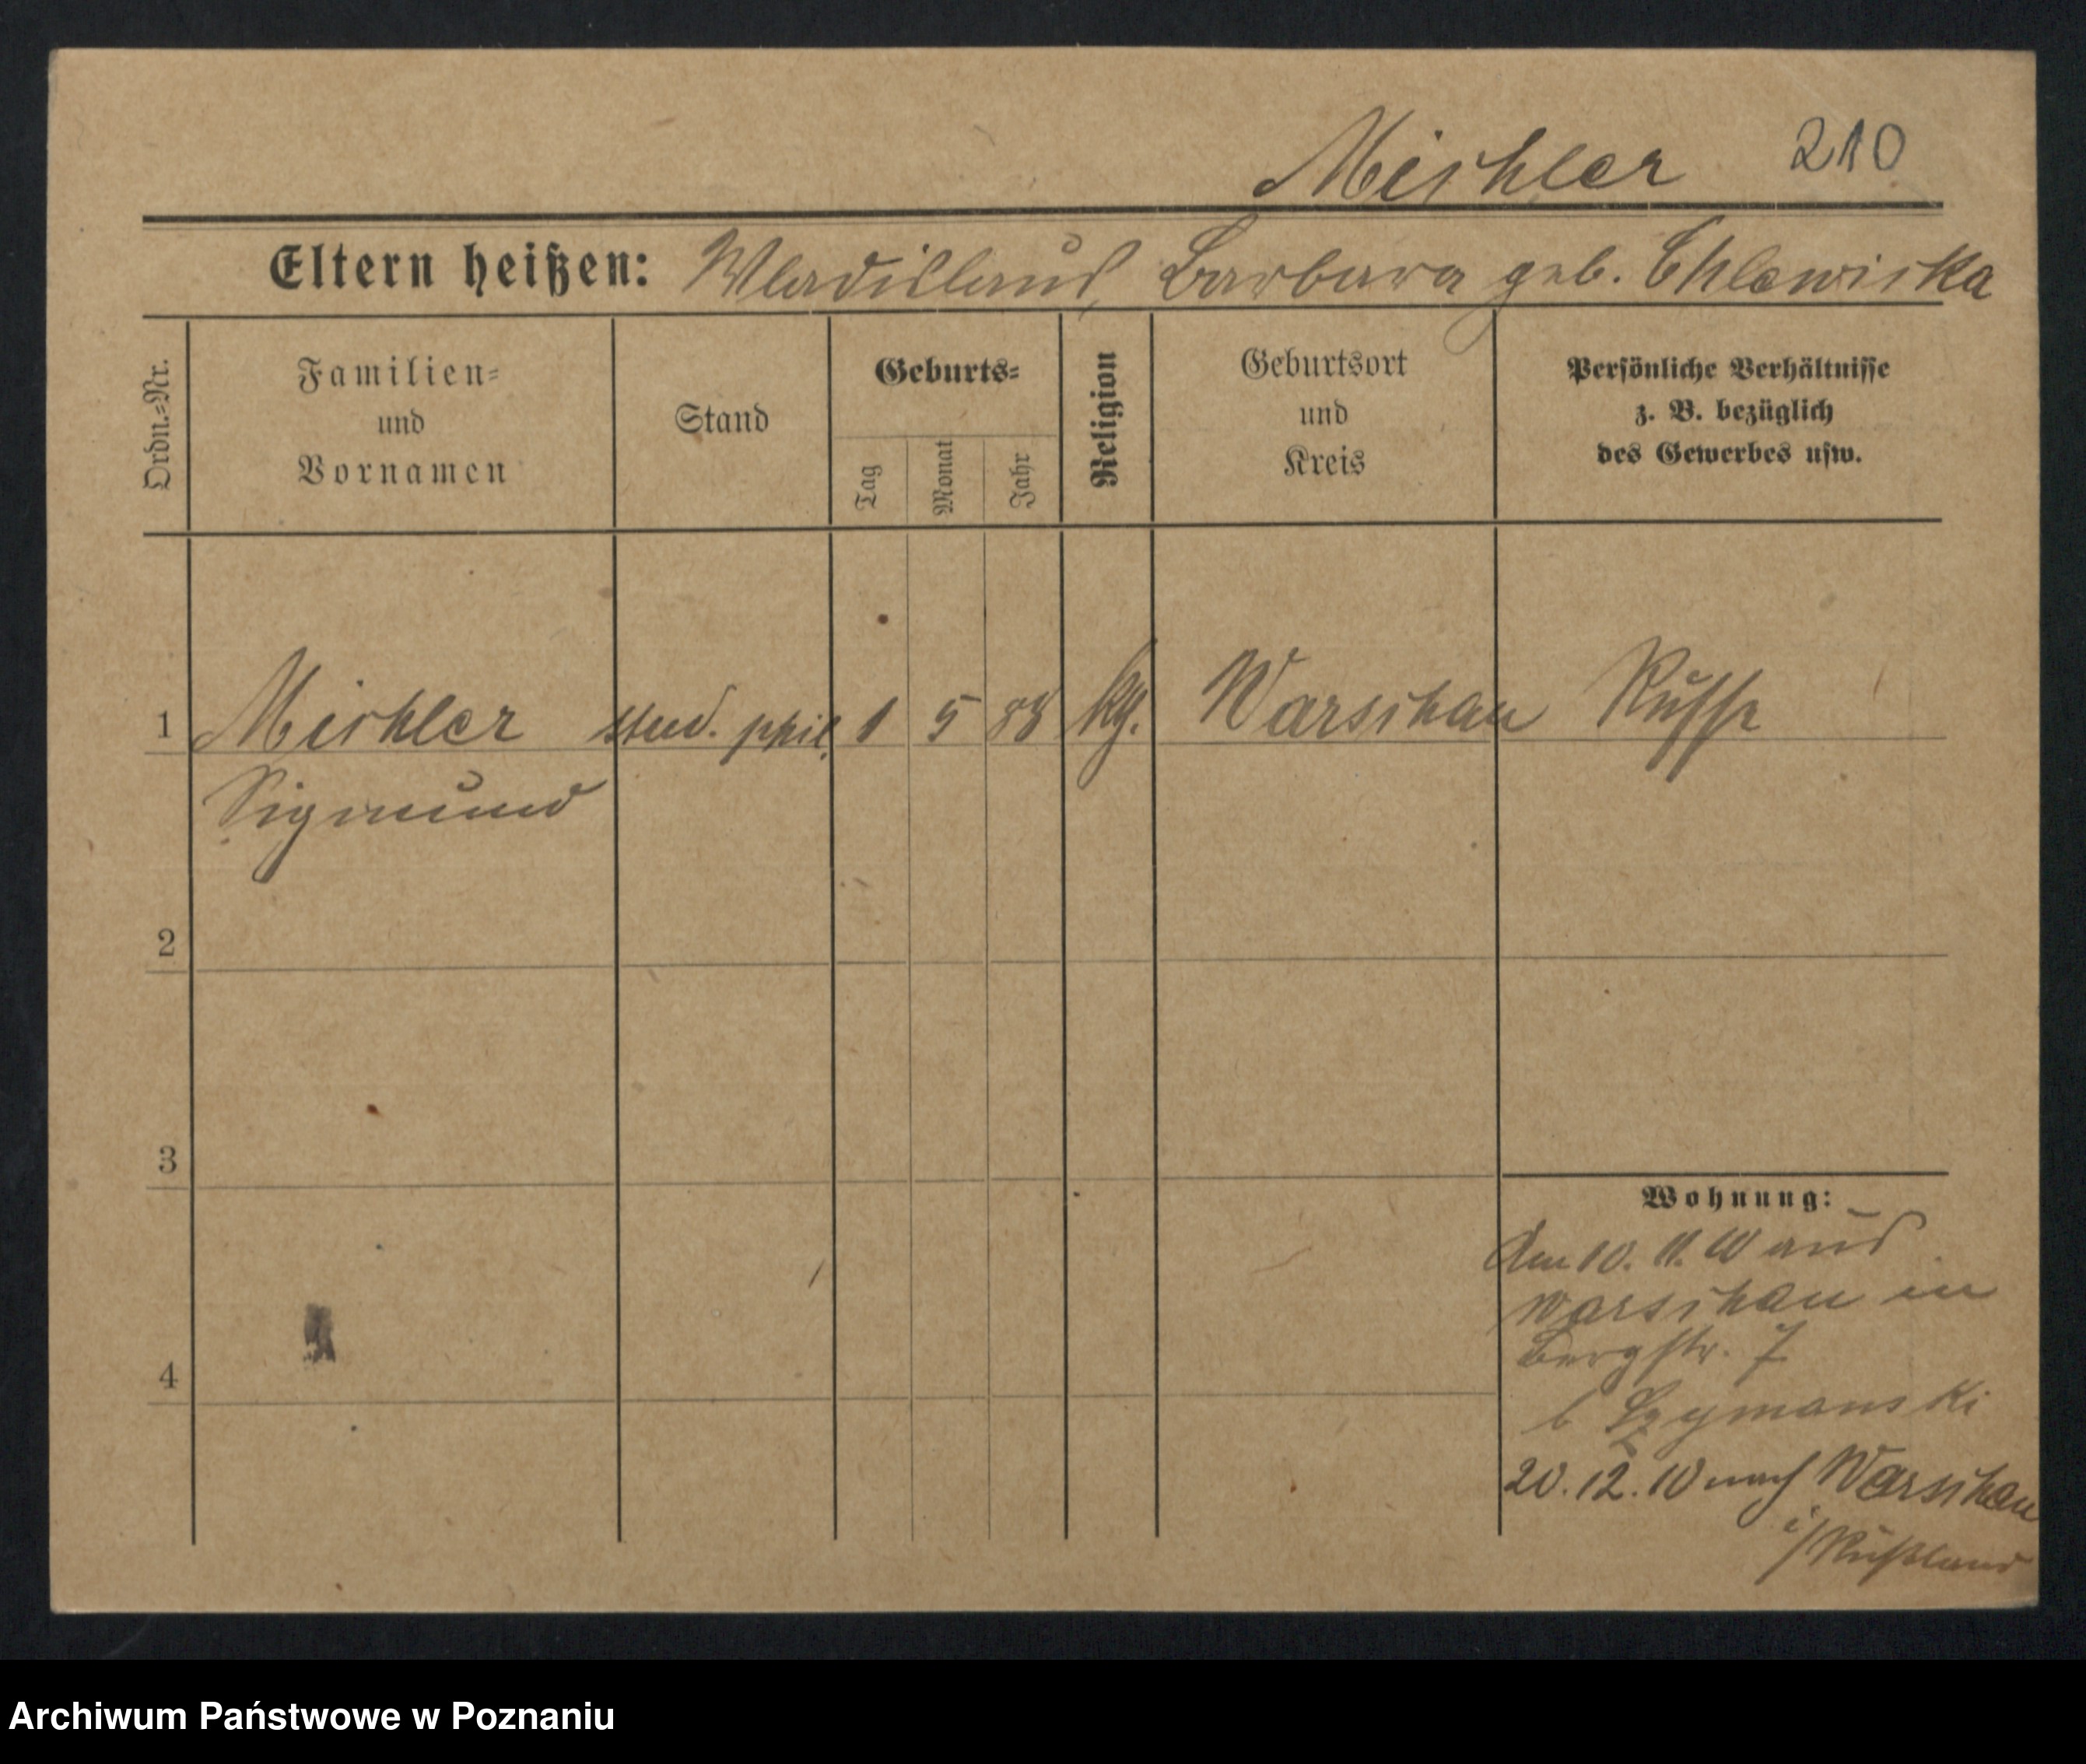 Meischler 210
Eltern heißen: Wladislaus, Barbara geb. Chlewicka
Ordn.=Nr.
Familien=
und
Vornamen
Stand
Geburts=
Tag
Monat
Jahr
Religion
Geburtsort
und
Kreis
Persönliche Verhältnisse
z. B. bezüglich
des Gewerbes usw.
1 stud. phil. 1 5 88 Warschau Russe
Sigmund
2
3
4
Wohnung:
Am 10. 11. 10 aus
Warschau in
Bergstr. 7
b Szymanski
20. 12. 10 nach Warschau
i/Rußland
Archiwum Państwowe w Poznaniu